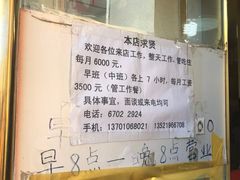 本店求贤
欢迎各位来店工作,整天工作,管吃住
每月6000元,
早班(中班)各上7小时,每月工资
3500元(管工作餐)
具体事宜,面谈或来电均可
电话:6702 2924
手机:13701068021 13521966708
早
00
早8点一晚8点营业